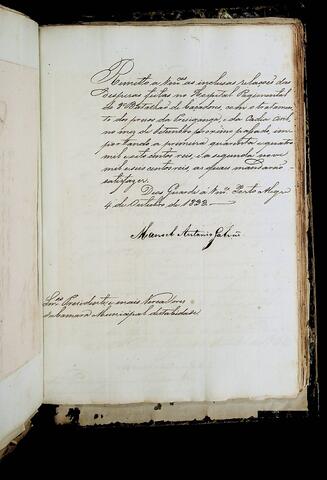 Remetto a Vm.ces as inclusas relações das
despezas feitas no Hospital Regimental
do 2º Batalhão de Caçadores, com o tratamen-
to dos prezos da Prezigança, e da Cadea Civil,
no mez de Setembro proximo passado, im-
portando a primeira quarenta e quatro
mil e oito centos reis, e a segunda nove
mil e seis centos reis, as quaes mandarão
satisfazer.
Deos Guarde a Vm.ces Porto Alegre
4 de Outubro de 1833.
Manoel Antonio Galvão
Snr.es Presidente, e mais Vereadores
da Camara Municipal desta Cidade